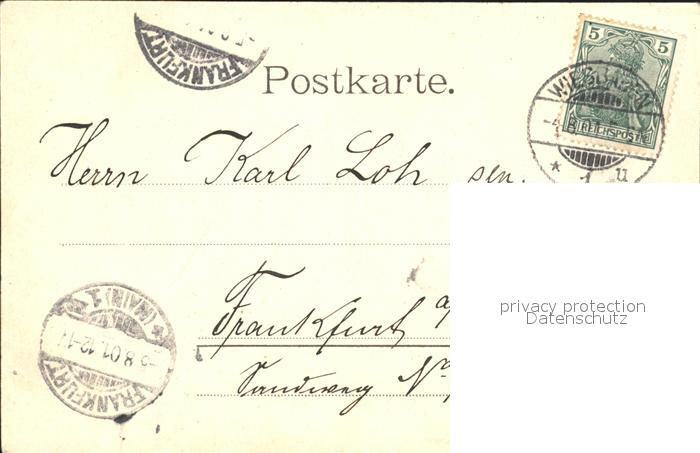 FRANKFURT
Postkarte.
5 5
REICHSPOST
WIESBADEN
* 1 u
Herrn Karl Loh sen.
Frankfurt a/
Sandweg No
FRANKFURT
* (MAIN) 1
8.01.12-1
privacy protection
Datenschutz